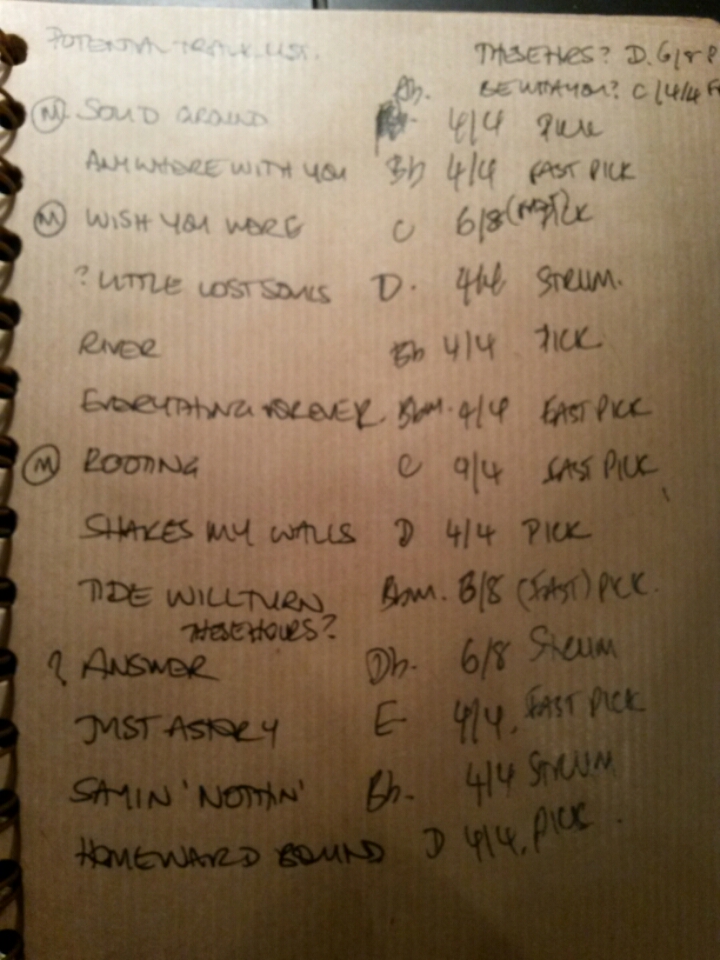 POTENTIAL TRACK LIST.
THESE HRS? D. 6/8 P
BE WITH YOU? C/4/4 F
M SOLID GROUND Ab. 4/4 PICK
ANYWHERE WITH YOU Bb 4/4 FAST PICK
M WISH YOU WERE C 6/8 PICK
? LITTLE LOST SOULS D. 4/4 STRUM.
RIVER Bb 4/4 PICK.
EVERYTHING FOREVER. Bbm. 4/4 FAST PICK
M ROOTING C 4/4 FAST PICK
SHAKES MY WALLS D 4/4 PICK
TIDE WILL TURN Bbm. 6/8 (FAST) PICK.
THESE HOURS?
? ANSWER Db. 6/8 STRUM
JUST A STORY E 4/4, FAST PICK
SAYIN 'NOTHIN' Bb. 4/4 STRUM
HOMEWARD BOUND D 4/4, PICK.